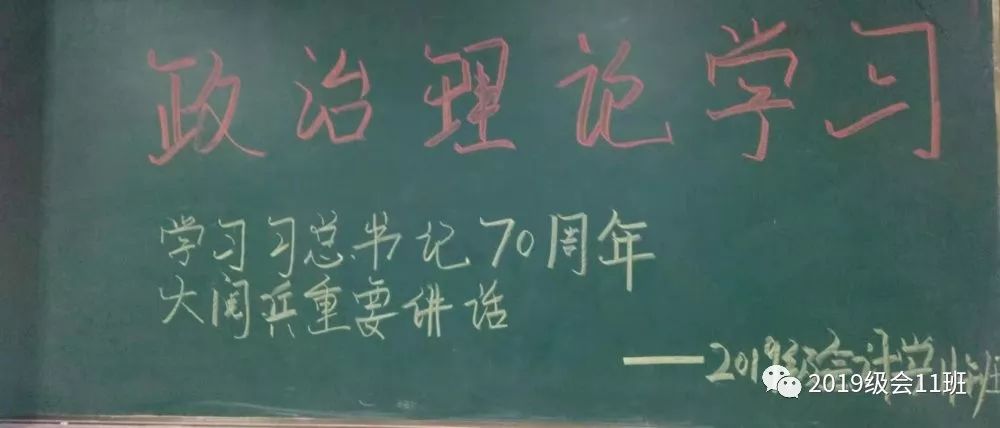 政治理论学习
学习习总书记70周年
大阅兵重要讲话
——2019级会计学11班
2019级会11班